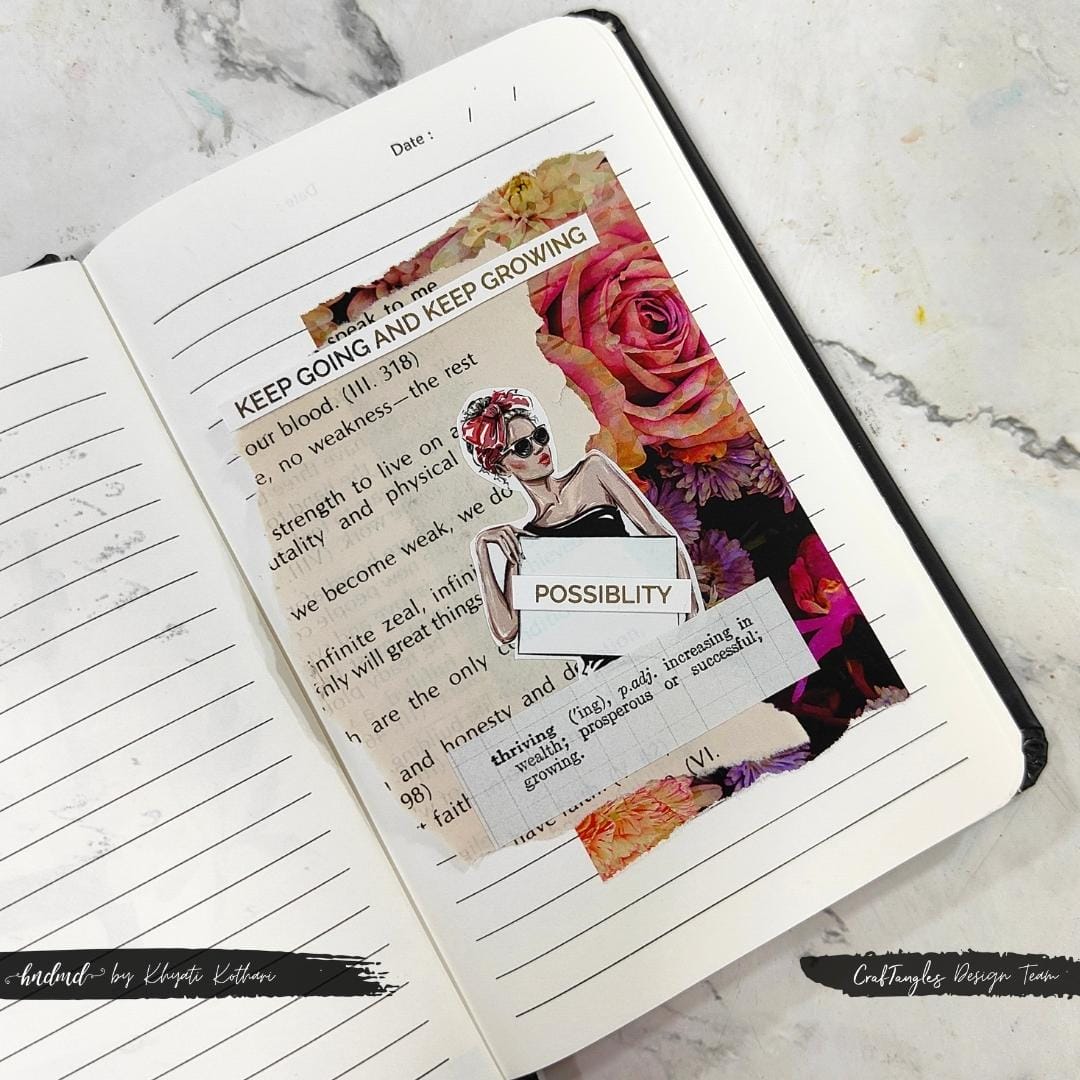 Date : / /
speak to me
KEEP GOING AND KEEP GROWING
our blood. (IIII. 318)
e, no weakness—the rest
strength to live on a
utality and physical
we become weak, we do
infinite zeal, infini
nly will great things
h are the only
and honesty and de
98)
+ faith
have faith
(VI.
POSSIBLITY
thriving ('ing), p.adj. increasing in
wealth; prosperous or successful;
growing.
hndmd by Khyati Kothari
CrafTangles Design Team